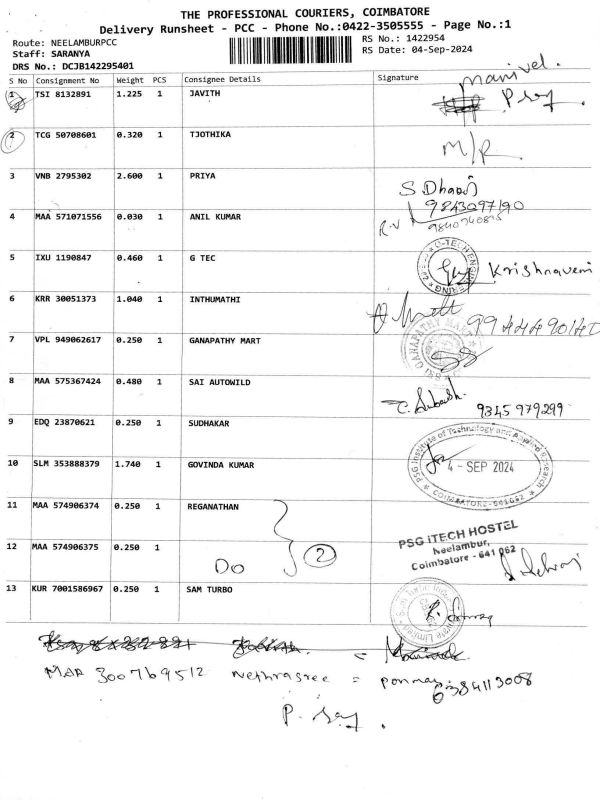 THE PROFESSIONAL COURIERS, COIMBATORE
Delivery Runsheet - PCC - Phone No.:0422-3505555 - Page No.:1
Route: NEELAMBURPCC
RS No.: 1422954
Staff: SARANYA
RS Date: 04-Sep-2024
DRS No.: DCJB142295401
S No Consignment No Weight PCS Consignee Details Signature
Manivel.
1 TSI 8132891 1.225 1 JAVITH
2 TCG 50708601 0.320 1 TJOTHIKA
M/R
3 VNB 2795302 2.600 1 PRIYA
9843097190
4 MAA 571071556 0.030 1 ANIL KUMAR
R.V
5 IXU 1190847 0.460 1 G TEC
Krishnaveni
6 KRR 30051373 1.040 1 INTHUMATHI
7 VPL 949062617 0.250 1 GANAPATHY MART
8 MAA 575367424 0.480 1 SAI AUTOWILD
C. Subash 9345 979299
9 EDQ 23870621 0.250 1 SUDHAKAR
PSG Institute of Technology and Applied Research
4 - SEP 2024
COIMBATORE-641062
10 SLM 353888379 1.740 1 GOVINDA KUMAR
11 MAA 574906374 0.250 1 REGANATHAN
PSG iTECH HOSTEL
Neelambur,
Coimbatore - 641 062
12 MAA 574906375 0.250 1
Do 2
13 KUR 7001586967 0.250 1 SAM TURBO
300769512 Nethrasree =